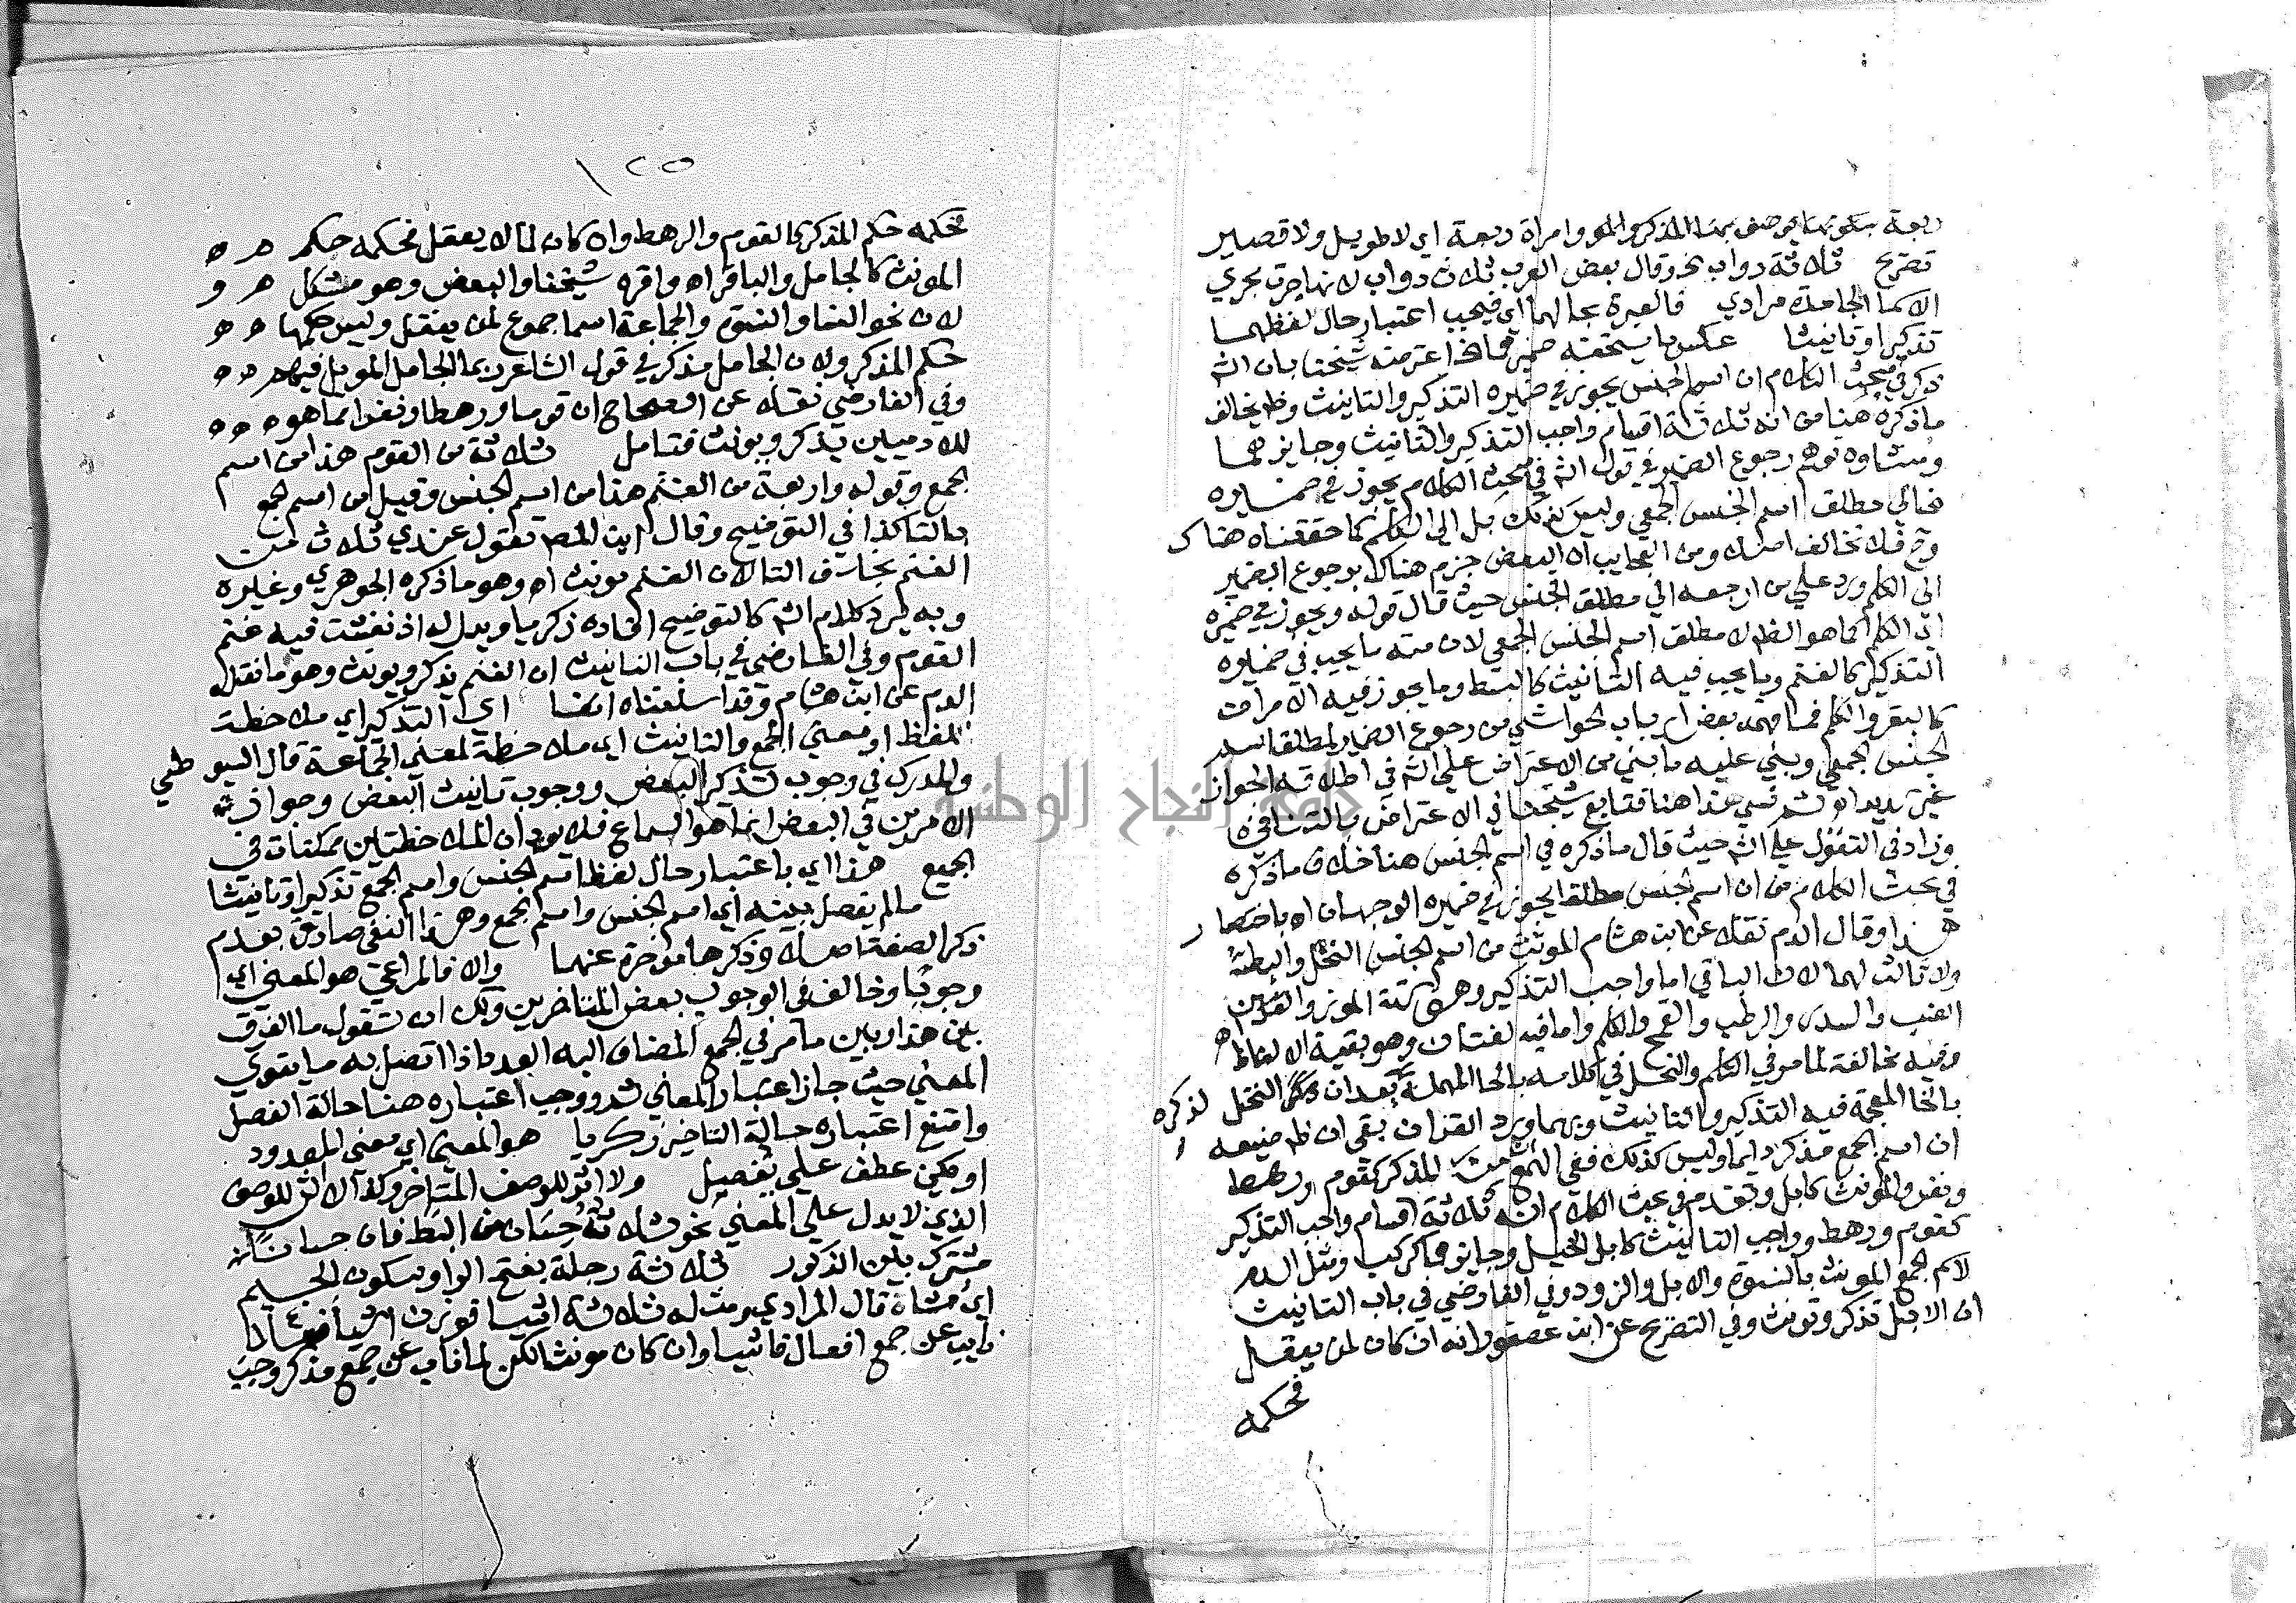 ربعة بسكونها يوصف بها المذكر والمو وامراة ربعة اي لا طويل ولا قصير
تصريح ثلاثة دواب نحو وقال بعض العرب ثلاث دواب لانها جرت مجري
الاسما الجامدة مرادي فالعبرة بحالهما اي فيجب اعتبار حال لفظهما
تذكيرا وتانيثا عكس ما يستحقه ضميرهما اعترضه شيخنا بان الش
ذكر في مبحث الكلام ان اسم الجنس يجوز في ضميره التذكير والتانيث وظ يخالف
ماذكره هنا من انه ثلاثة اقسام واجب التذكير والتانيث وجايزهما
ومنشاوه توهم رجوع الضمير في قول الش في مبحث الكلام يجوز في ضميره
الي مطلق اسم الجنس الجمعي وليس كذلك بل الي الكلم كما حققناه هناك
وح فلا تخالف اصلا ومن العجايب ان البعض جزم هناك برجوع الضمير
الي الكلم ورد علي من ارجعه الي مطلق الجنس حيث قال قوله ويجوز في ضميره
اي الكلم كما هو الظ لا مطلق اسم الجنس الجمعي لان منه ما يجب في ضميره
التذكير كالغنم وما يجب فيه التانيث كالبط وما يجوز فيه الامران
كالبقر والكلم فما فهمه بعض ارباب الحواشي من رجوع الضمير لمطلق اسم
الجنس الجمعي وبني عليه ما بني من الاعتراض علي الش في اطلاقه الجواز
غير سديد اه ثم نسي هذا هنا فتابع شيخنا في الاعتراض بالتنافي
وزاد في التقول علي الش حيث قال ماذكره في اسم الجنس هنا خلاف ماذكره
في بحث الكلام من ان اسم الجنس مطلقا يجوز في ضميره الوجهان اه باختصار
هذا وقال الدم نقلا عن ابن هشام المونث من اسم الجنس النخل والبط
ولا ثالث لهما لان الباقي اما واجب التذكير وهو ستة الموز و
العنب والسدر والرطب والقمح والكلم واما فيه لغتان وهو بقية الالفاظ اه
وفيه مخالفة لما مر في الكلم والنحل في كلامه بالحا المهملة بعد ان ذكر النخل لذكره
بالخا المعجمة فيه التذكير والتانيث وبهما ورد القران بقي ان ظ صنيعه
ان اسم الجمع مذكر دايما وليس كذلك ففي الهمع مثل للمذكر كقوم ورهط
ونفر والمونث كابل وتقدم في بحث الكلام انه ثلاثة اقسام واجب التذكير
كقوم ورهط وواجب التانيث كابل والخيل وجايزهما كركب ومثل الدم
لاسم الجمع المونث بالنسوة والابل والزود وفي الفارضي في باب التانيث
ان الابل تذكر وتونث وفي التصريح عن ابن عصفور انه ان كان لمن يعقل
فحكمه
١٢٥
فحكمه حكم المذكر كالقوم والرهط وان كان لما لا يعقل فحكمه حكم
المونث كالجامل والباقر اه واقره شيخنا والبعض وهو مشكل
لان نحو النسا والنسوة والجماعة اسما جموع لمن يعقل وليس حكمها
حكم المذكر ولان الجامل مذكر في قول الشاعر ربما الجامل الموبل فيهم
وفي الفارضي نقلا عن الصحاح ان قوما ورهطا ونفرا مما هو
للادميين يذكر ويونث فتامل ثلاثة من القوم هذا من اسم
الجمع وقوله واربعة من الغنم هذا من اسم الجنس وقيل من اسم الجمع
بالتا كذا في التوضيح وقال ابن المصـ تقول عندي ثلاث من
الغنم بحذف التا لان الغنم مونث اه وهو ما ذكره الجوهري وغيره
وبه يرد كلام الش كالتوضيح افاده زكريا ويدل له اذ نفشت فيه غنم
القوم وفي الفارضي في باب التانيث ان الغنم يذكر ويونث وهو ما نقله
الدم عن ابن هشام وقد اسلفناه انفا اي التذكير اي ملاحظة
اللفظ او معني الجمع والتانيث اي ملاحظة لمعني الجماعة قال السيوطي
والمدرك في وجوب تذكير البعض ووجوب تانيث البعض وجواز
الامرين في البعض انما هو السماع فلا يرد ان الملاحظتين ممكنتان في
الجميع هذا اي باعتبار حال لفظ اسم الجنس واسم الجمع تذكيرا وتانيثا
مالم يفصل بينه اي اسم الجنس واسم الجمع وهذا النفي صادق بعدم
ذكر الصفة اصلا وذكرها موخرة عنهما والا فالمراعي هو المعني اي
وجوبا وخالف في الوجوب بعض المتاخرين ولك ان تقول ما الفرق
بين هذا وبين ما مر في الجمع المضاف اليه العدد اذا اتصل به ما يقوي
المعني حيث جاز اعتبار المعني ثم ووجب اعتباره هنا حالة الفصل
وامتنع اعتباره حالة التاخير زكريا هو المعني اي معني المعدود
او يكن عطف علي يفصل ولا اثر للوصف المتاخر وكذا لا اثر للوصف
الذي لا يدل علي المعني نحو ثلاثة حسان من البط فان حسانا
مشترك بين الذكور ثلاثة رجلة بفتح الرا وسكون الجيم
اي مشاة قال المرادي ومثله ثلاثة اشيا فوزن اشيا
نايب عن جمع افعال فاشيا وان كان مونثا لكن لما ناب عن جمع مذكر وجب